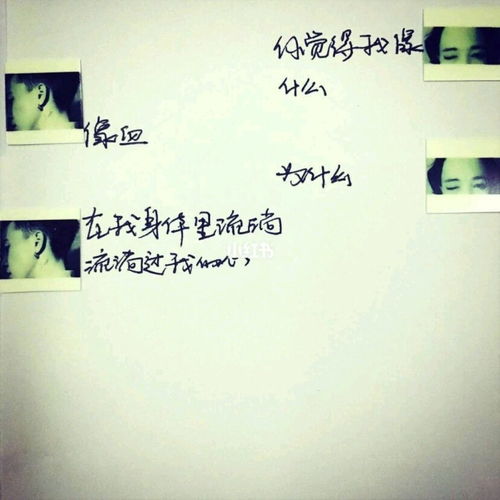 你觉得我像
什么
像血
为什么
在我身体里流淌
流淌过我的心,
小红书